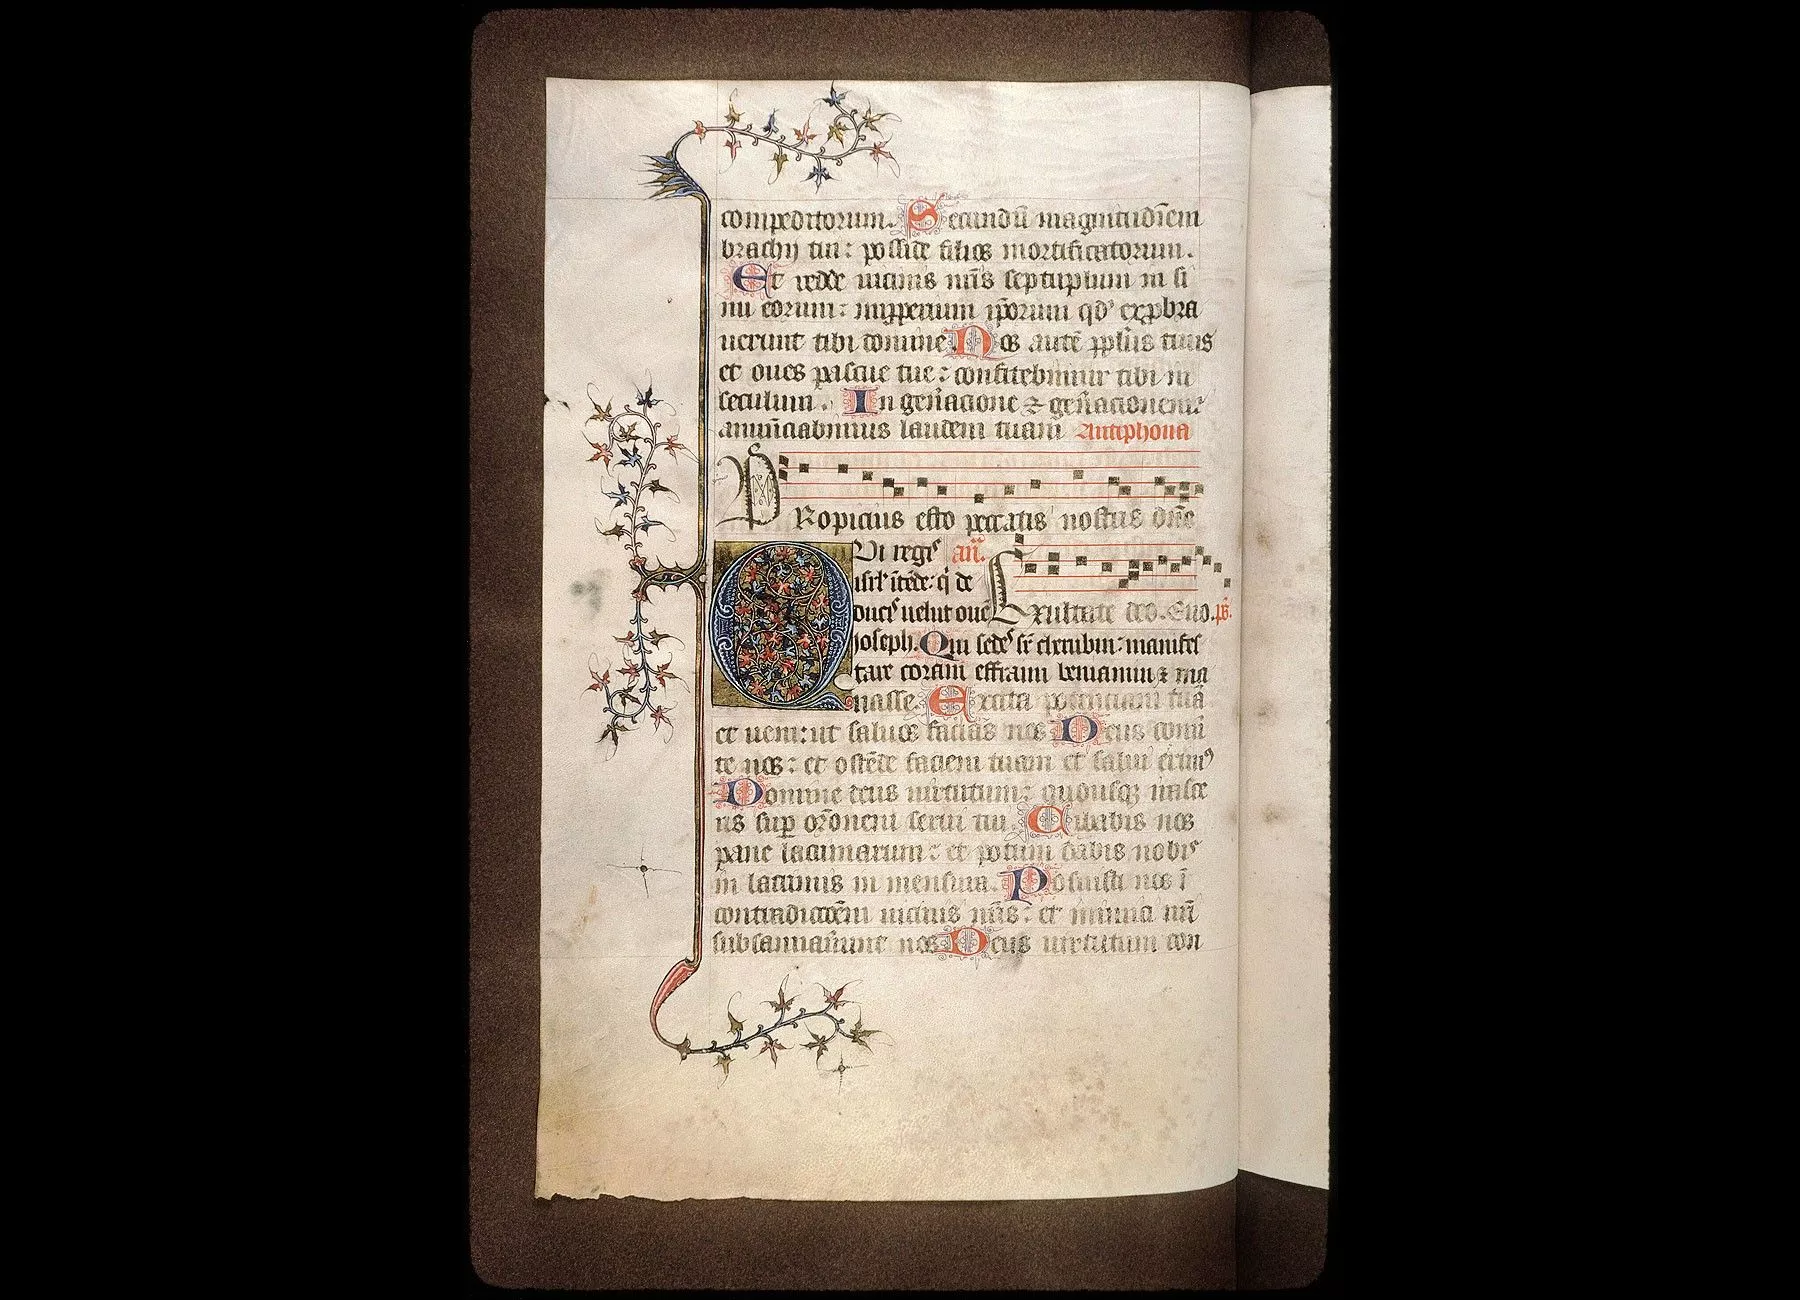 compeditorum. Secundū magnitudinem
brachij tui: posside filios mortificatorum.
Et redde uicinis nr̄is septuplum in si
nu eorum: improperium ip̄orum qd' exprobra
uerunt tibi domine Nos autē ppl̄us tuus
et oues pascue tue: confitebimur tibi in
seculum. In gen̄acione & gen̄acionem:
anūnciabimus laudem tuam Antiphona
PRopicius esto peccatis nostris dn̄e
QUi regis an̄.
isrl' ītēde: q̇ de
ducis uelut ouē Exultate deo. Euo. ps̄.
ioseph. Qui sedes sr̄ cherubin: manifes
tare coram effraim beniamin & ma
nasse. Excita potenciam tuā
et ueni: ut saluos facias nos Deus conu̅
te nos: et ostēde faciem tuam et salui erimꝰ
Domine deus uirtutum: quousqꝫ irasce
ris sup or̄onem serui tui. Cibabis nos
pane lacrimarum: et potum dabis nobis
in lacrimis in mensura. Posuisti nos ī
contradictōem uicinis nr̄is: et inimici nr̄i
subsannauerunt nos Deus uirtutum con